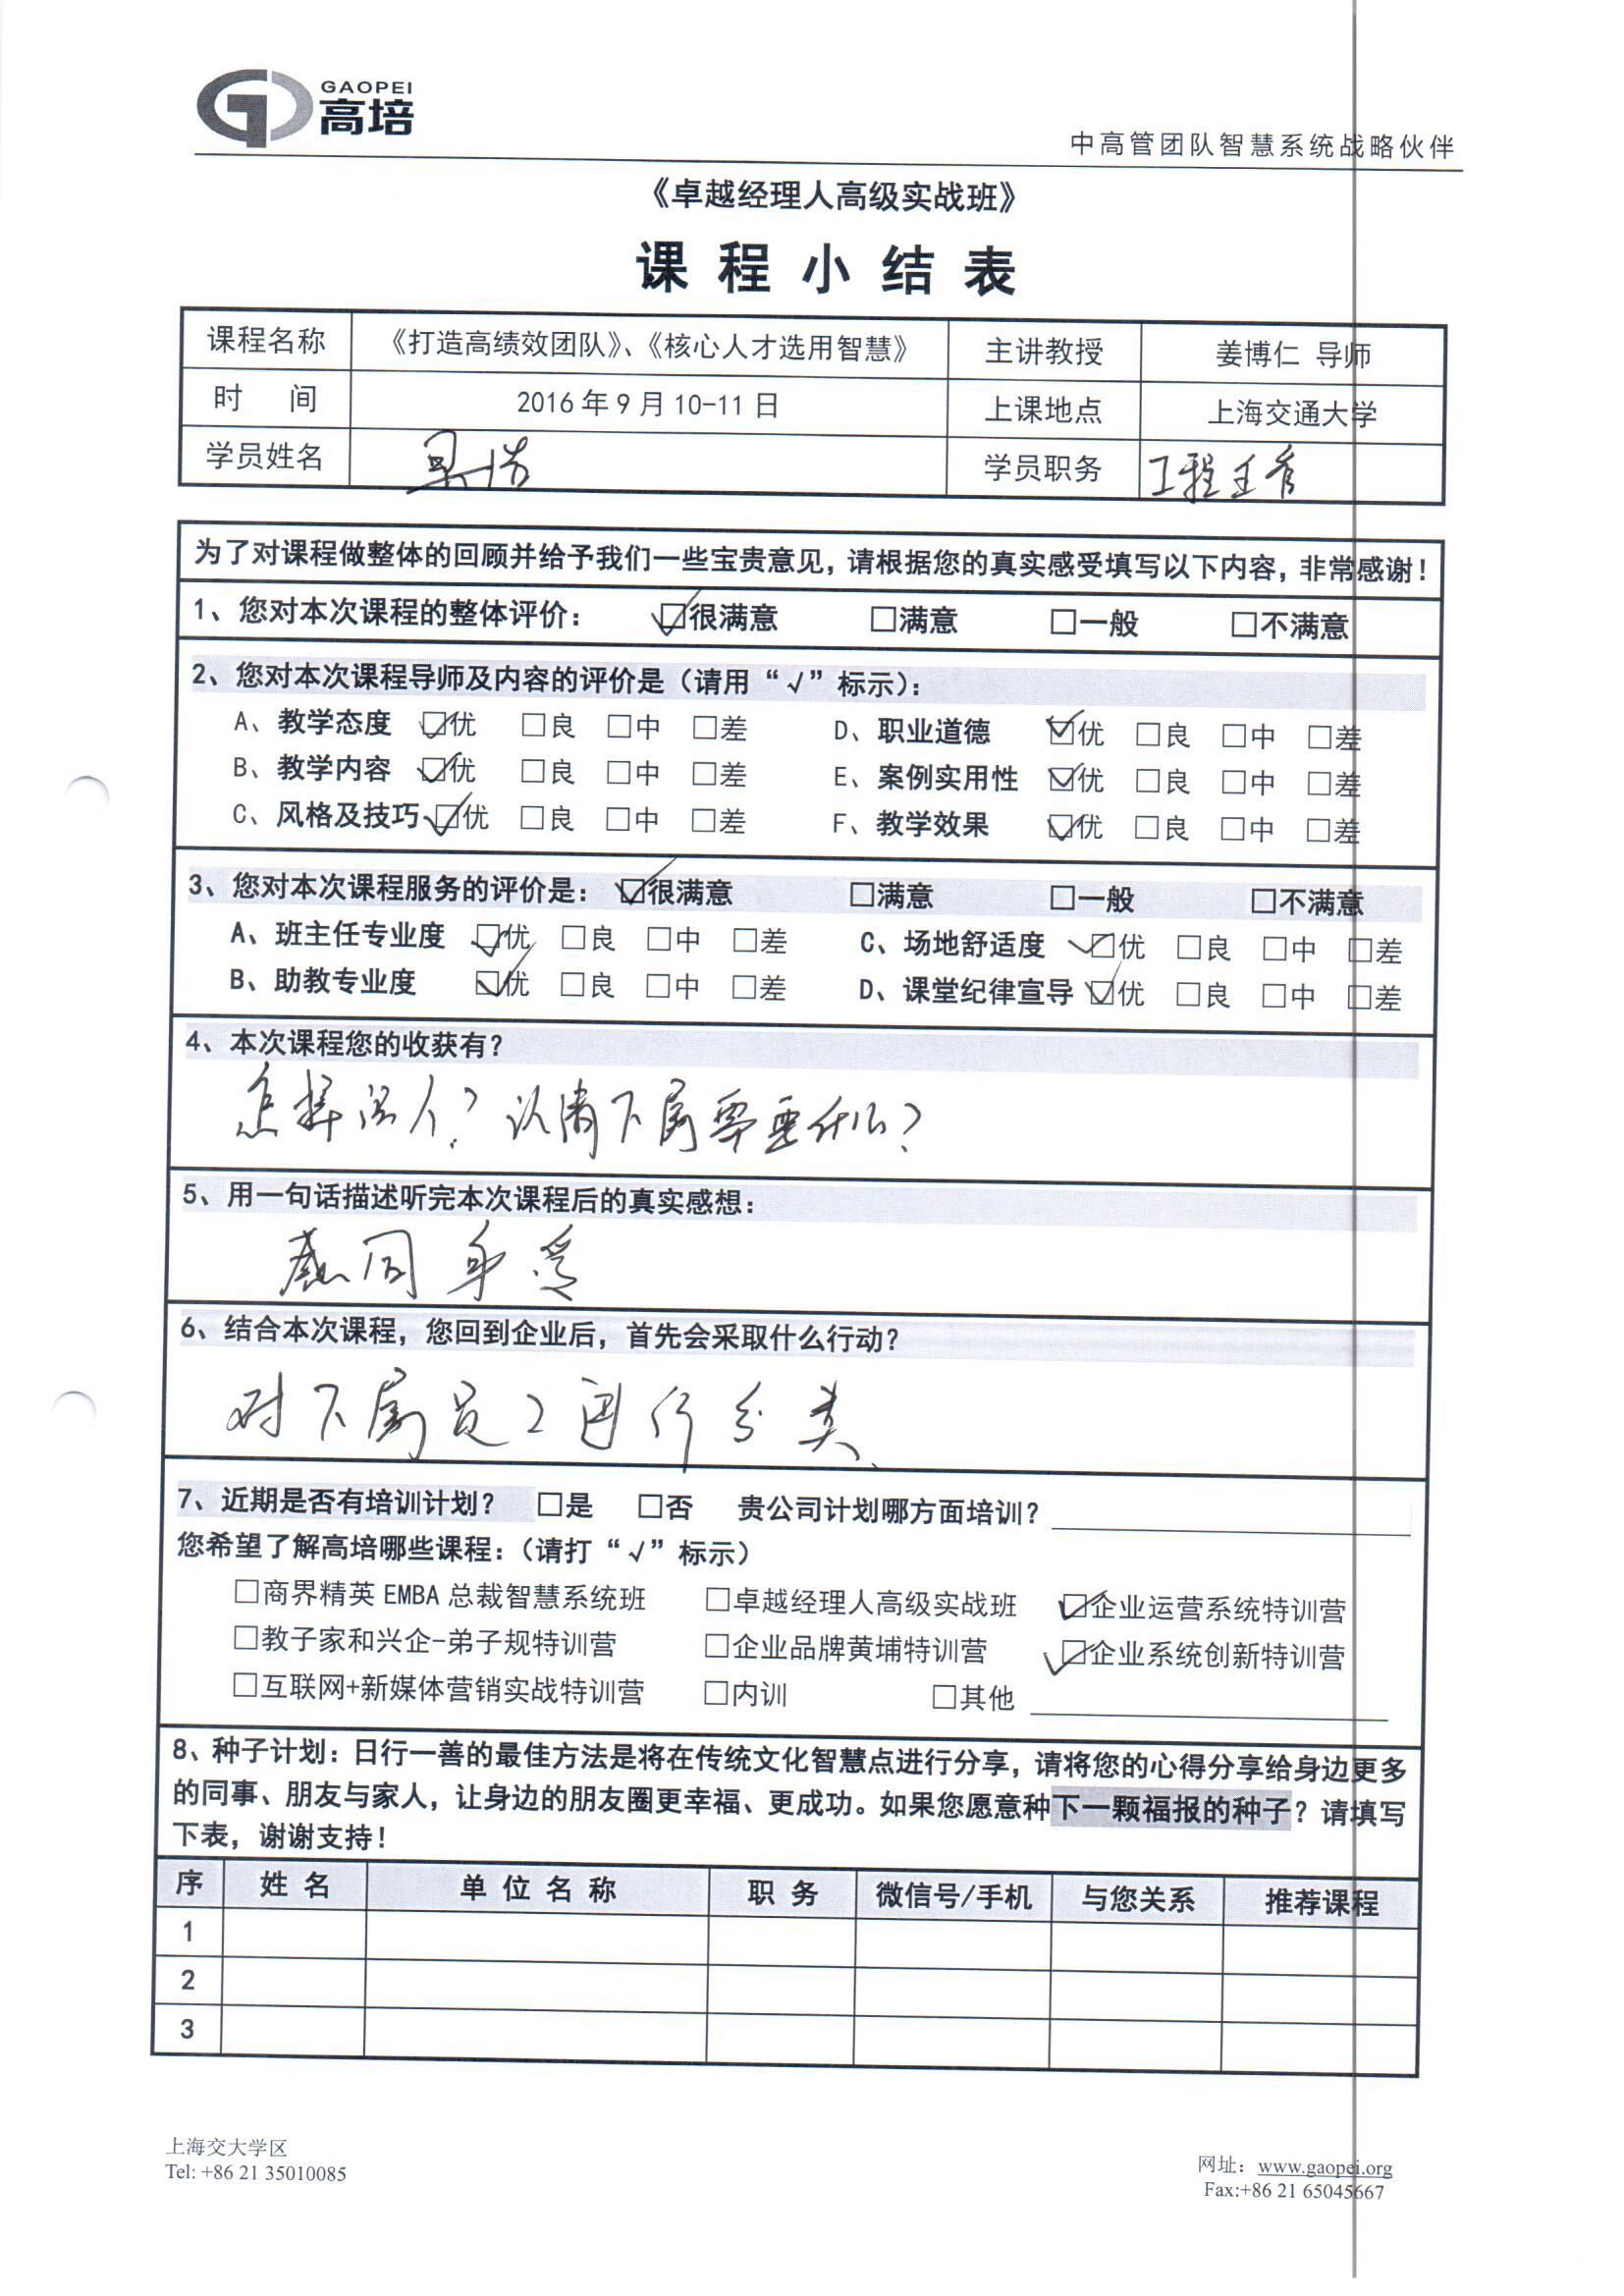 GAOPEI
高培
中高管团队智慧系统战略伙伴
《卓越经理人高级实战班》
课 程 小 结 表
课程名称 《打造高绩效团队》、《核心人才选用智慧》 主讲教授 姜博仁 导师
时 间 2016 年 9 月 10-11 日 上课地点 上海交通大学
学员姓名 学员职务 工程主管
为了对课程做整体的回顾并给予我们一些宝贵意见，请根据您的真实感受填写以下内容，非常感谢！
1、您对本次课程的整体评价： ☑很满意 □满意 □一般 □不满意
2、您对本次课程导师及内容的评价是（请用“√”标示）：
A、教学态度 ☑优 □良 □中 □差 D、职业道德 ☑优 □良 □中 □差
B、教学内容 ☑优 □良 □中 □差 E、案例实用性 ☑优 □良 □中 □差
C、风格及技巧 ☑优 □良 □中 □差 F、教学效果 ☑优 □良 □中 □差
3、您对本次课程服务的评价是： ☑很满意 □满意 □一般 □不满意
A、班主任专业度 ☑优 □良 □中 □差 C、场地舒适度 ☑优 □良 □中 □差
B、助教专业度 ☑优 □良 □中 □差 D、课堂纪律宣导 ☑优 □良 □中 □差
4、本次课程您的收获有？
怎样识人？认清下属需要什么？
5、用一句话描述听完本次课程后的真实感想：
感同身受
6、结合本次课程，您回到企业后，首先会采取什么行动？
对下属员工进行分类、
7、近期是否有培训计划？ □是 □否 贵公司计划哪方面培训？
您希望了解高培哪些课程：（请打“√”标示）
□商界精英 EMBA 总裁智慧系统班 □卓越经理人高级实战班 ☑企业运营系统特训营
□教子家和兴企-弟子规特训营 □企业品牌黄埔特训营 ☑企业系统创新特训营
□互联网+新媒体营销实战特训营 □内训 □其他
8、种子计划：日行一善的最佳方法是将在传统文化智慧点进行分享，请将您的心得分享给身边更多
的同事、朋友与家人，让身边的朋友圈更幸福、更成功。如果您愿意种下一颗福报的种子？请填写
下表，谢谢支持！
序 姓 名 单 位 名 称 职 务 微信号/手机 与您关系 推荐课程
1
2
3
上海交大学区
Tel: +86 21 35010085
网址：www.gaopei.org
Fax:+86 21 65045667